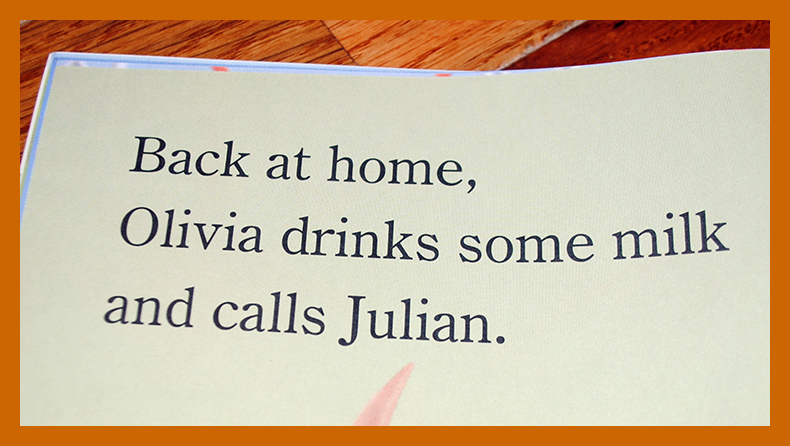 Back at home,
Olivia drinks some milk
and calls Julian.